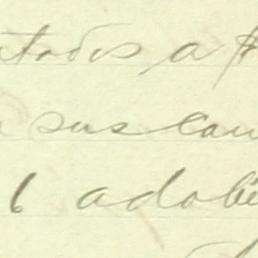 tados a $
sus cau
6 adobe